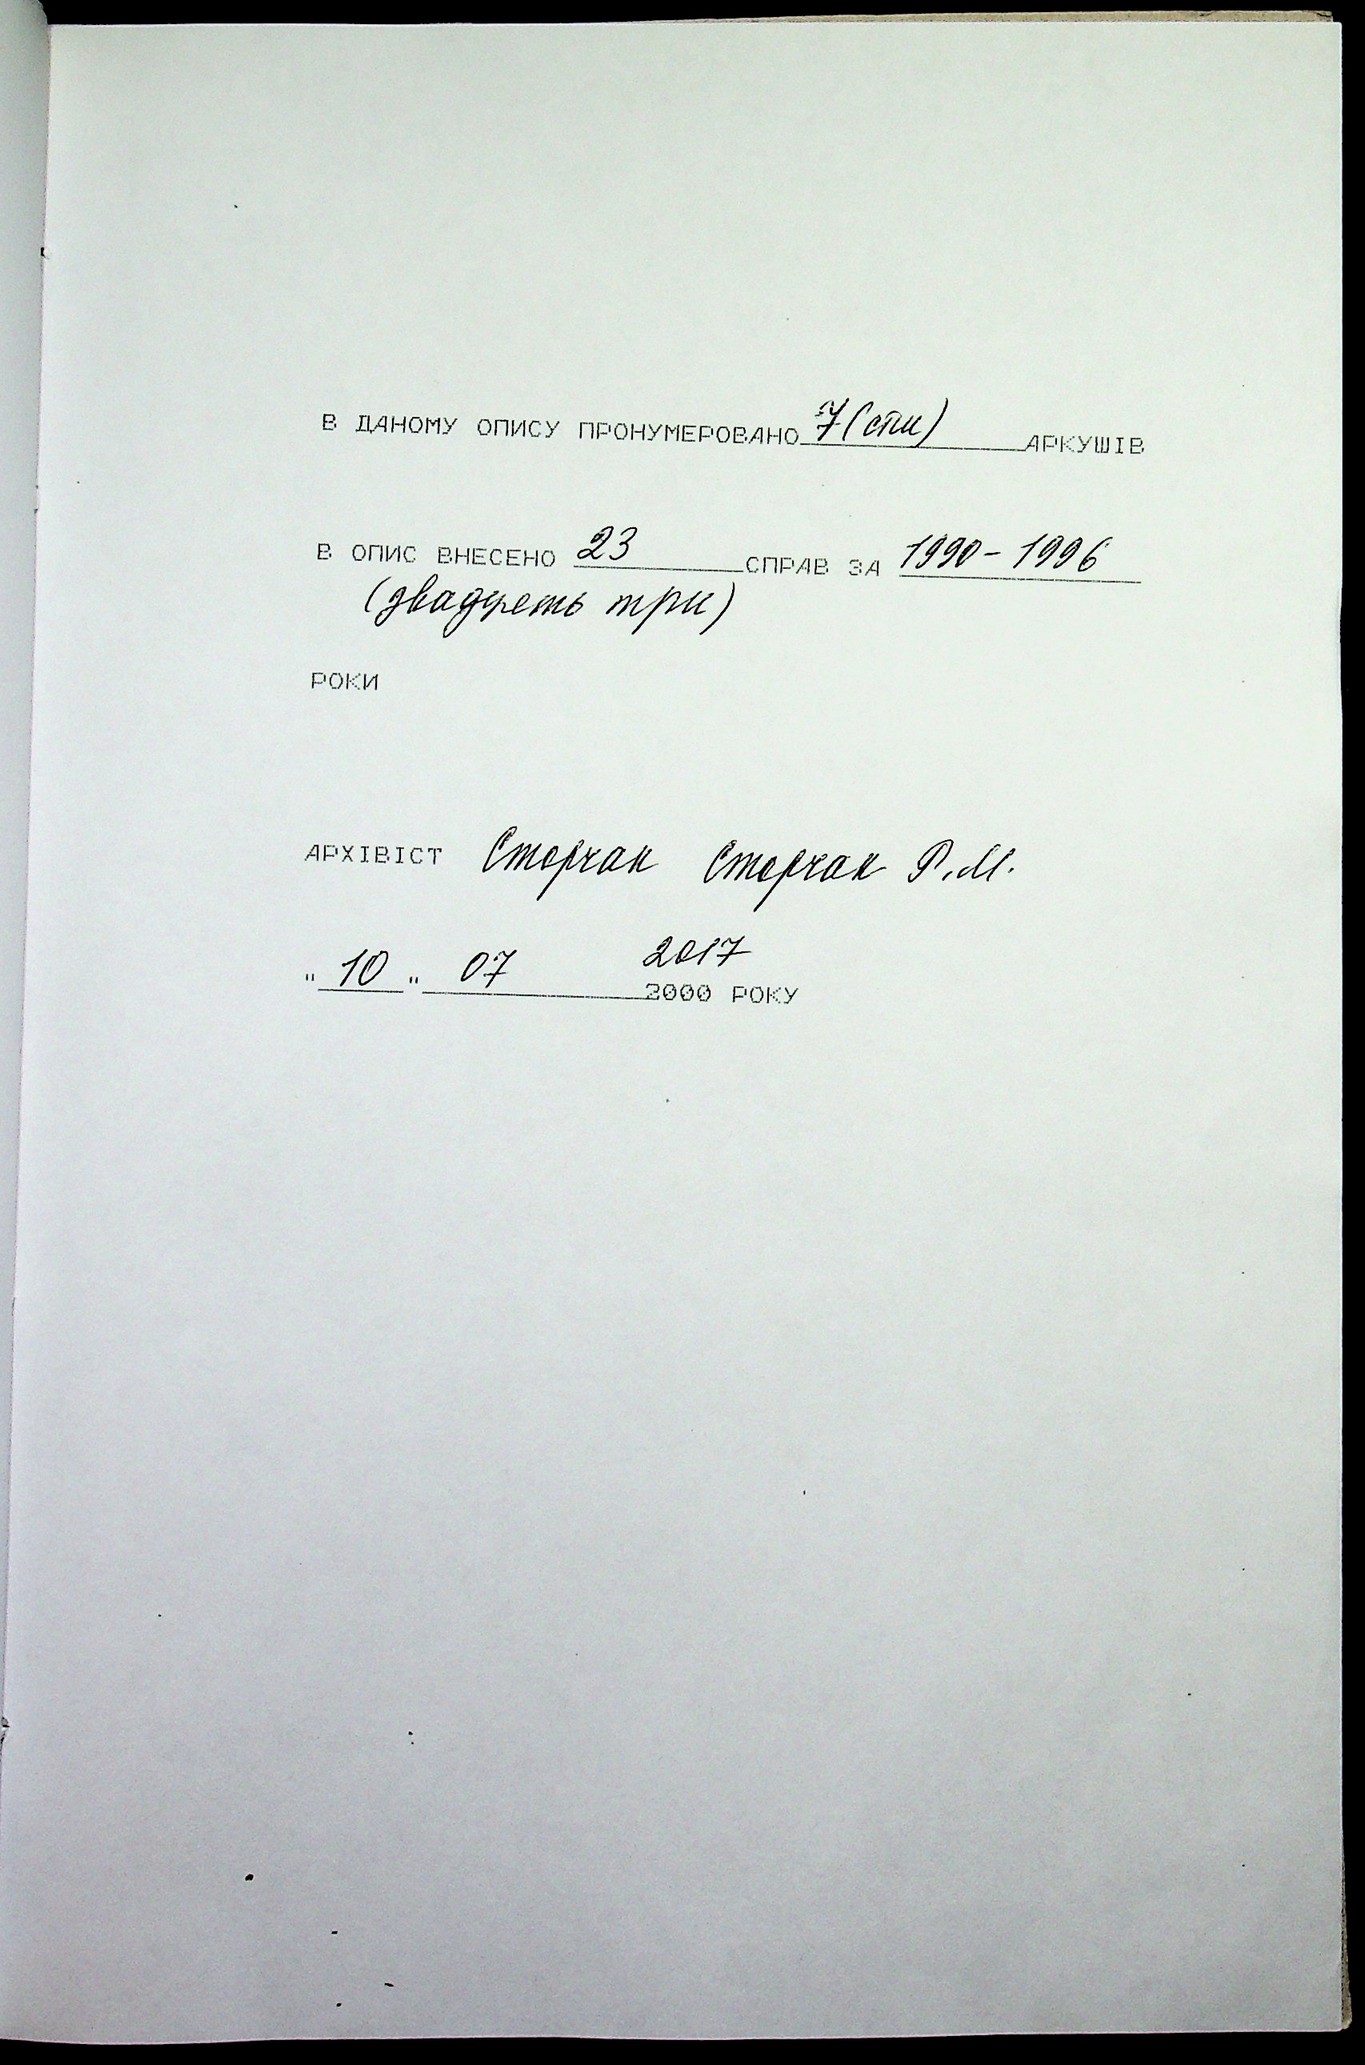 В ДАНОМУ ОПИСУ ПРОНУМЕРОВАНО 7 (сім) АРКУШІВ
В ОПИС ВНЕСЕНО 23 СПРАВ ЗА 1990-1996
(двадцять три)
РОКИ
АРХІВІСТ Сторчак Сторчак Р.М.
"10" 07 2017
2000 РОКУ